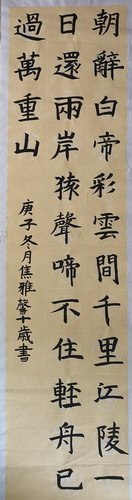 朝辭白帝彩雲間千里江陵一
日還兩岸猿聲啼不住輕舟已
過萬重山
庚子冬月焦雅馨十歲書